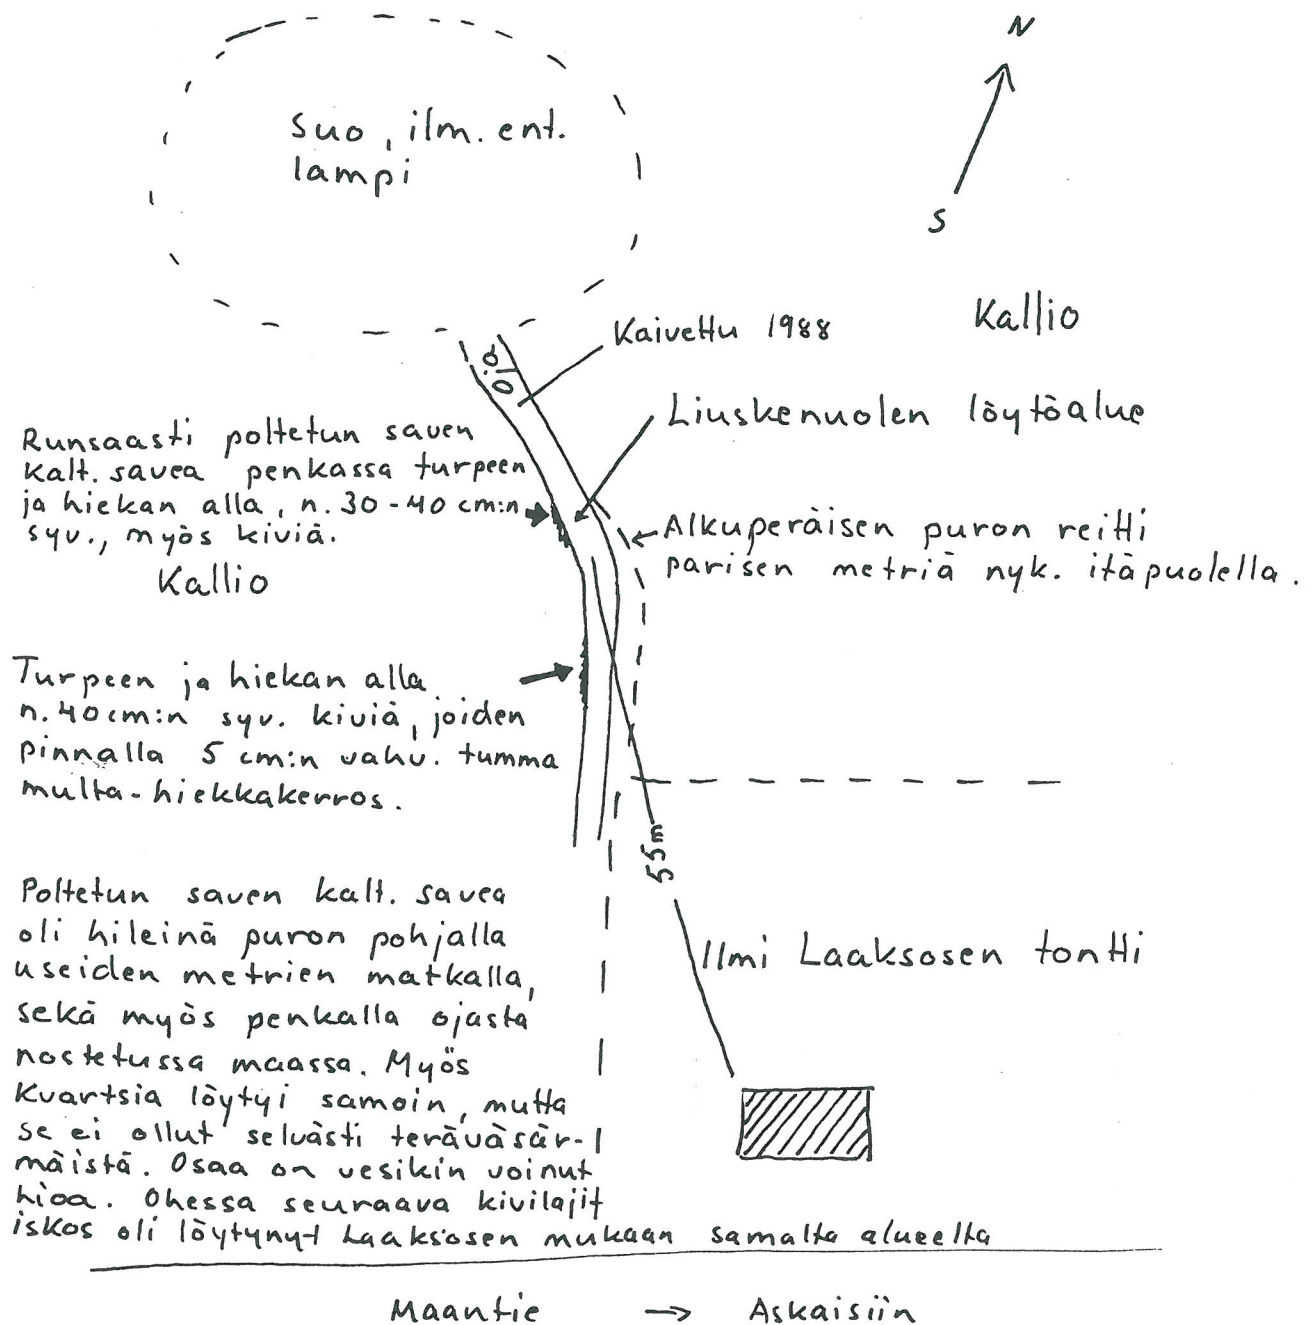 N
suo, ilm. ent.
lampi
S
Kallio
Kaivettu 1988
oja
Liuskenuolen löytöalue
Runsaasti poltetun saven
kalt. savea penkassa turpeen
ja hiekan alla, n. 30-40 cm:n
syv., myös kiviä.
Alkuperäisen puron reitti
parisen metriä nyk. itäpuolella.
Kallio
Turpeen ja hiekan alla
n. 40 cm:n syv. kiviä, joiden
pinnalla 5 cm:n vahv. tumma
multa-hiekkakerros.
55m
Poltetun saven kalt. savea
oli hileinä puron pohjalla
useiden metrien matkalla,
sekä myös penkalla ojasta
nostetussa maassa. Myös
Kvartsia löytyi samoin, mutta
se ei ollut selvästi teräväsär-
mäistä. Osaa on vesikin voinut
hioa. Ohessa seuraava kivilajit
iskos oli löytynyt Laaksosen mukaan samalta alueelta
Ilmi Laaksosen tontti
Maantie → Askaisiin